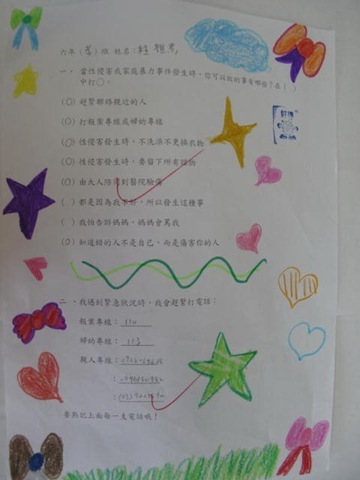 六年(孝)班 姓名:
一、當性侵害或家庭暴力事件發生時,你可以做的事有哪些?在( )
中打○。
(○) 趕緊聯絡親近的人
(○) 打報案專線或婦幼專線
(○) 性侵害發生時,不洗澡不更換衣物
(○) 性侵害發生時,要留下所有證物
(○) 由大人陪同到醫院驗傷
( ) 都是因為我不好,所以發生這種事
( ) 我怕告訴媽媽,媽媽會罵我
(○) 知道錯的人不是自己,而是傷害你的人
二、我遇到緊急狀況時,我會趕緊打電話:
報案專線: 110
婦幼專線: 113
親人專線:
要熟記上面每一支電話哦!